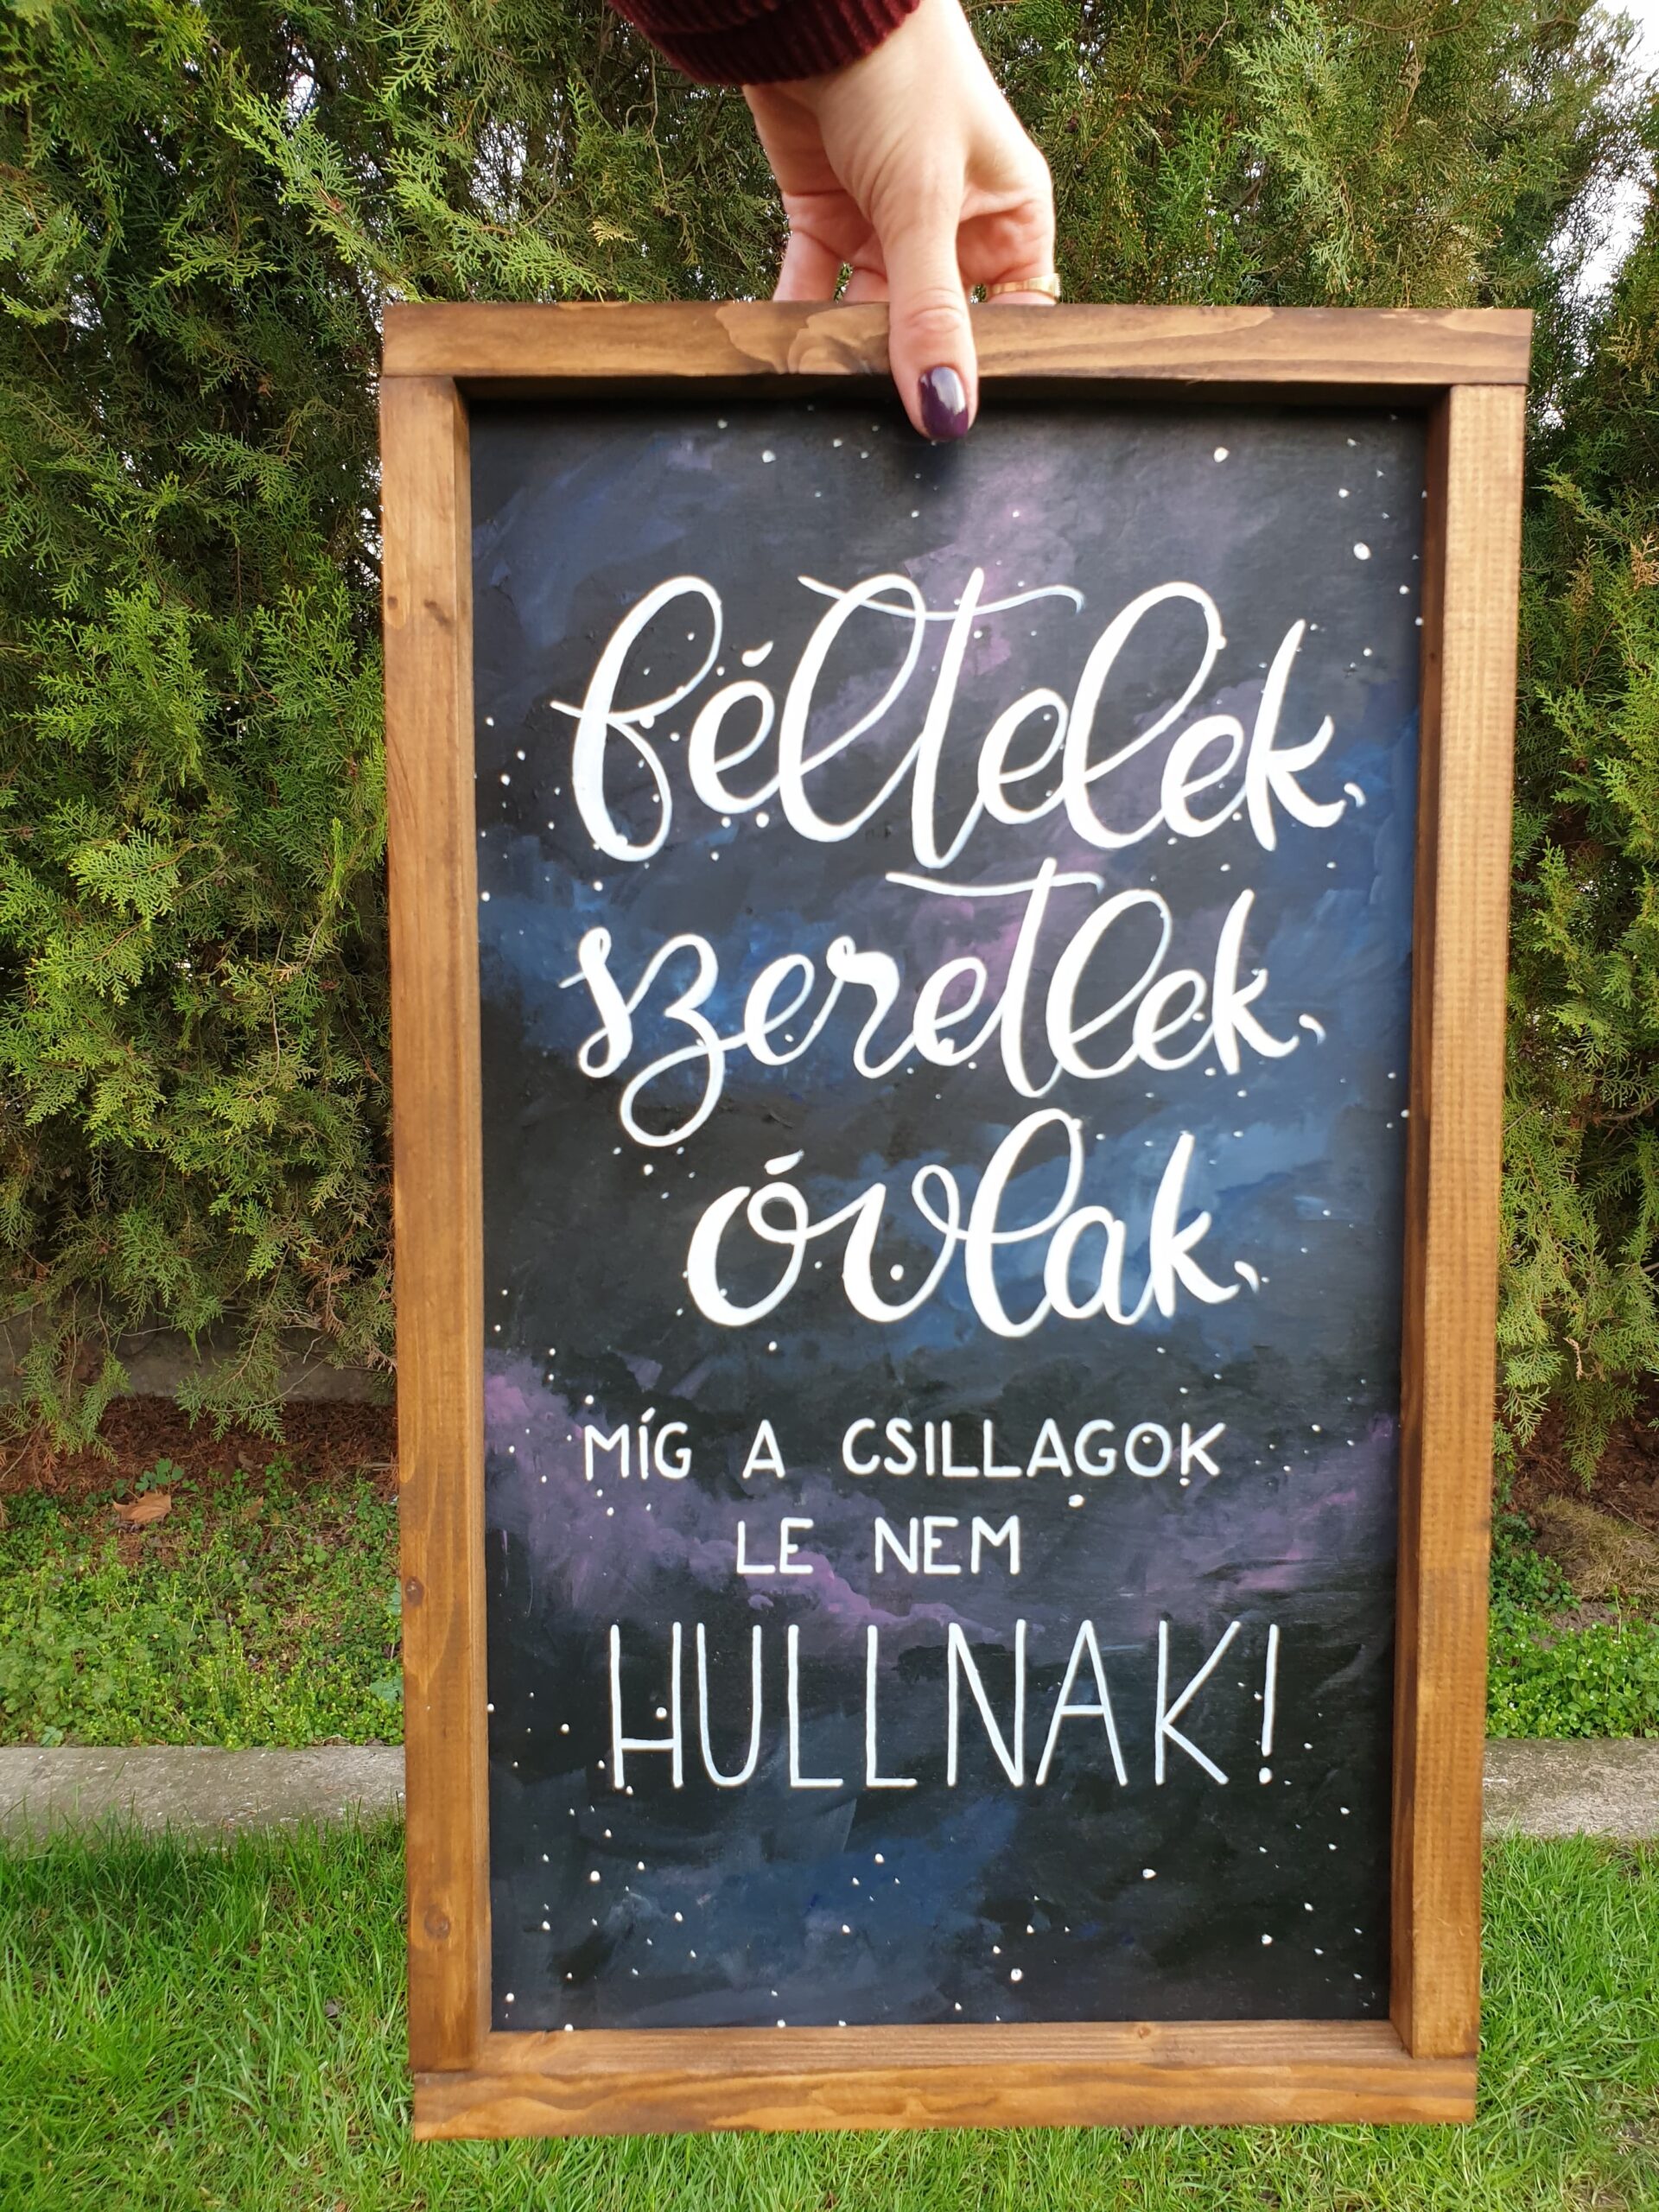 féltelek,
szeretlek,
óvlak,
MÍG A CSILLAGOK
LE NEM
HULLNAK!